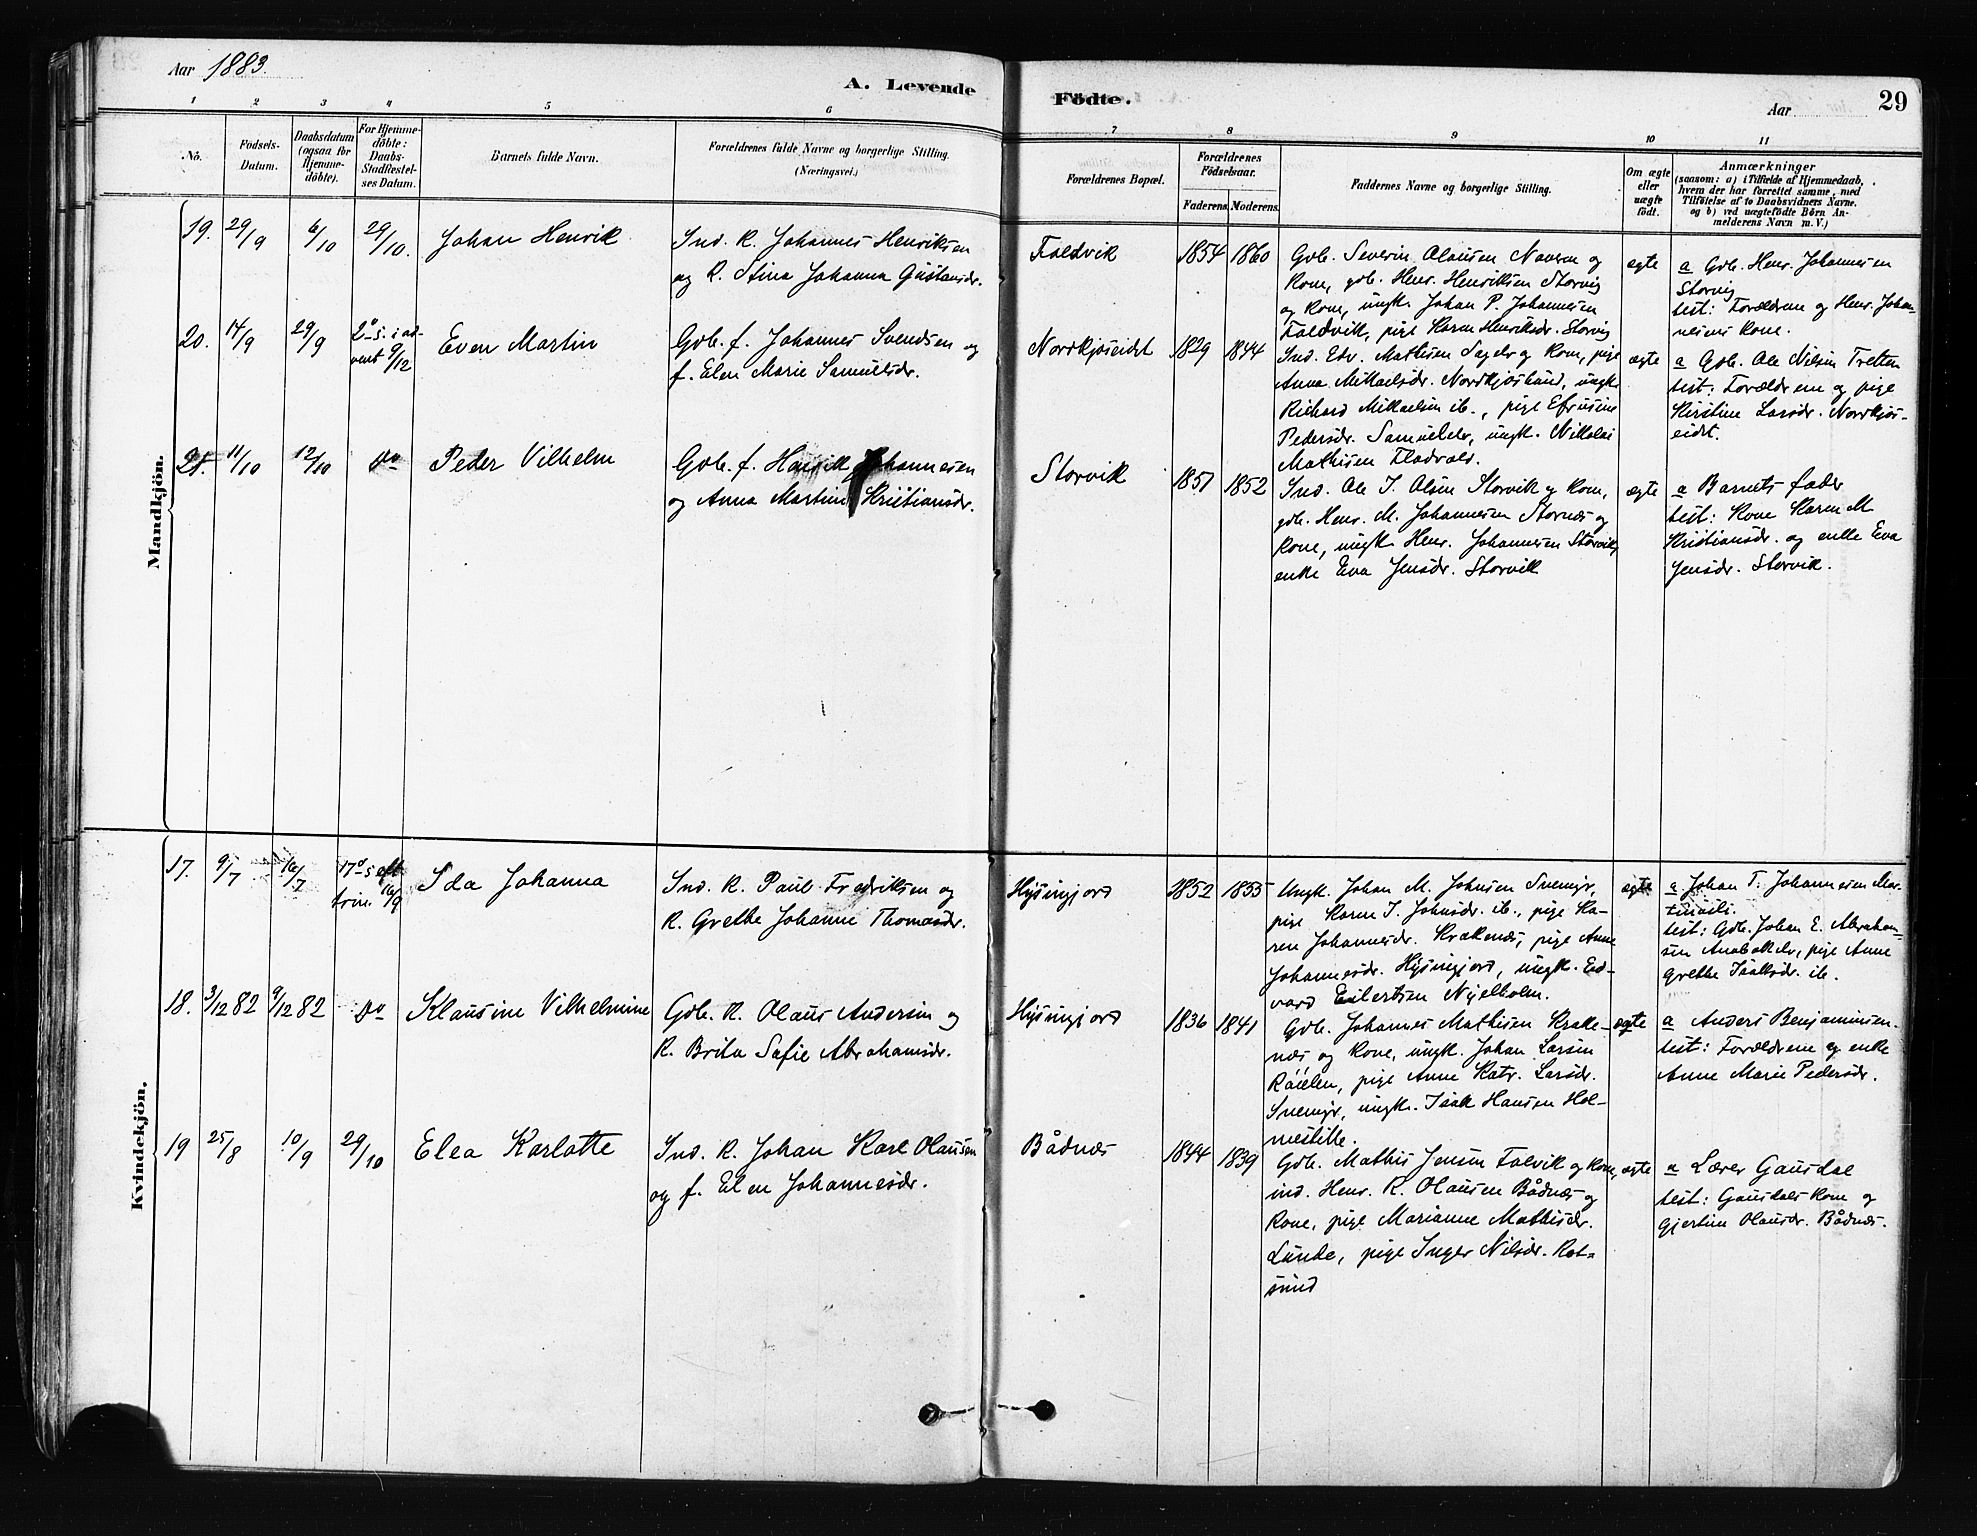 Aar 1883.
A. Levende
Födte.
Aar
29
1 2 3 4 5 6 7 8 9 10 11
No.
Födsels-
Datum.
Daabsdatum
(ogsaa för
Hjemme-
döbte).
For Hjemme-
döbte:
Daabs-
Stadfæstel-
ses Datum.
Barnets fulde Navn.
Forældrenes fulde Navne og borgerlige Stilling.
(Næringsvei.)
Forældrenes Bopæl.
Forældrenes
Födselsaar.
Faderens. Moderens.
Faddernes Navne og borgerlige Stilling.
Om ægte
eller
uægte
födt.
Anmærkninger
(saasom: a) i Tilfælde af Hjemmedaab,
hvem der har forrettet samme, med
Tilföielse af to Daabsvidners Navne.
og b) ved uægtefödte Börn An-
melderens Navn m.V.)
Mandkjön.
19. 29/9 6/10 29/10. Johan Henrik
Ind. K. Johannes Henriksen
og K. Stina Johanna Gustavsdr.
Faldvik 1854 1860
Gdb. Severin Olausen Naveren og
kone, gdb. Henr. Henriksen Storvig
og kone, ungk. Johan P. Johannesen
Faldvik, pige Karen Henriksdr. Storvig
ægte
a Gdb. Henr. Johannesen
Storvig
test: Forældrene og Henr. Johan-
nesens kone.
20. 14/9 29/9 2den s. i ad-
vent 9/12
Even Martin
Gdb. f. Johannes Svendsen og
f. Elen Marie Samuelsdr.
Nordkjoseidet 1829 1844
Ind. Edv. Mathisen Sagelv og kone, pige
Anna Mikkaelsdr. Nordkjosbund, ungk.
Richard Mikkaelsen ib., pige Efrusine
Pedersdr. Samuelelv, ungk. Nikolai
Mathisen Fladvold.
ægte
a Gdb. Ole Nilsen Tretten
test: Forældrene og pige
Kirstine Larsdr. Nordkjos-
eidet.
21. 11/10 12/10 do Peder Vilhelm
Gdb. f. Henrik Johannesen
og Anna Martina Kristiansdr.
Storvik 1851 1852
Ind. Ole J. Olsen Storvik og kone,
gdb. Henr. M. Johannesen Stornes og
kone, ungk. Henr. Johannesen Storvik,
enke Eva Jensdr. Storvik
ægte
a Barnets fader
test: Kone Karen M.
Kristiansdr. og enke Eva
Jensdr. Storvik.
Kvindekjön.
17. 9/7 16/7 17de s. eft.
trin. 16/9
Ida Johanna
Ind. K. Paul Fredriksen og
K. Grethe Johanne Thomasdr.
Hysingjord 1852 1855
Ungk. Johan M. Johnsen Snemyr,
pige Karen J. Johnsdr. ib., pige Ka-
ren Johannesdr. Krakenes, pige Anne
Johannesdr. Hysingjord, ungk. Ed-
vard Eilertsen Nyelholm.
ægte
a Johan T. Johannesen Mar-
tinsli.
test: Gdb. Johan E. Abraham-
sen Anabakken, pige Anne
Grethe Isaksdr. ib.
18. 3/12 82 9/12 82 do Klausine Vilhelmine
Gdb. K. Olaus Andersen og
K. Brita Sofie Abrahamsdr.
Hysingjord 1836 1841
Gdb. Johannes Mathisen Krake-
næs og kone, ungk. Johan Larsen
Röielen, pige Anne Katr. Larsdr.
Snemyr, ungk. Isak Hansen Hol-
meslette.
ægte
a Anders Benjaminsen.
test: Forældrene og enke
Anne Marie Pedersdr.
19 25/8 10/9 29/10 Elea Karlotte
Ind. K. Johan Karl Olausen
og f. Elen Johannesdr.
Bådnes 1844 1839
Gdb. Mathis Jensen Falvik og kone,
ind. Henr. K. Olausen Bådnes og
kone, pige Marianne Mathisdr.
Lunde, pige Inger Nilsdr. Rot-
sund
ægte
a Lærer Gausdal
test: Gausdals kone og
Gjertine Olausdr. Bådnes.